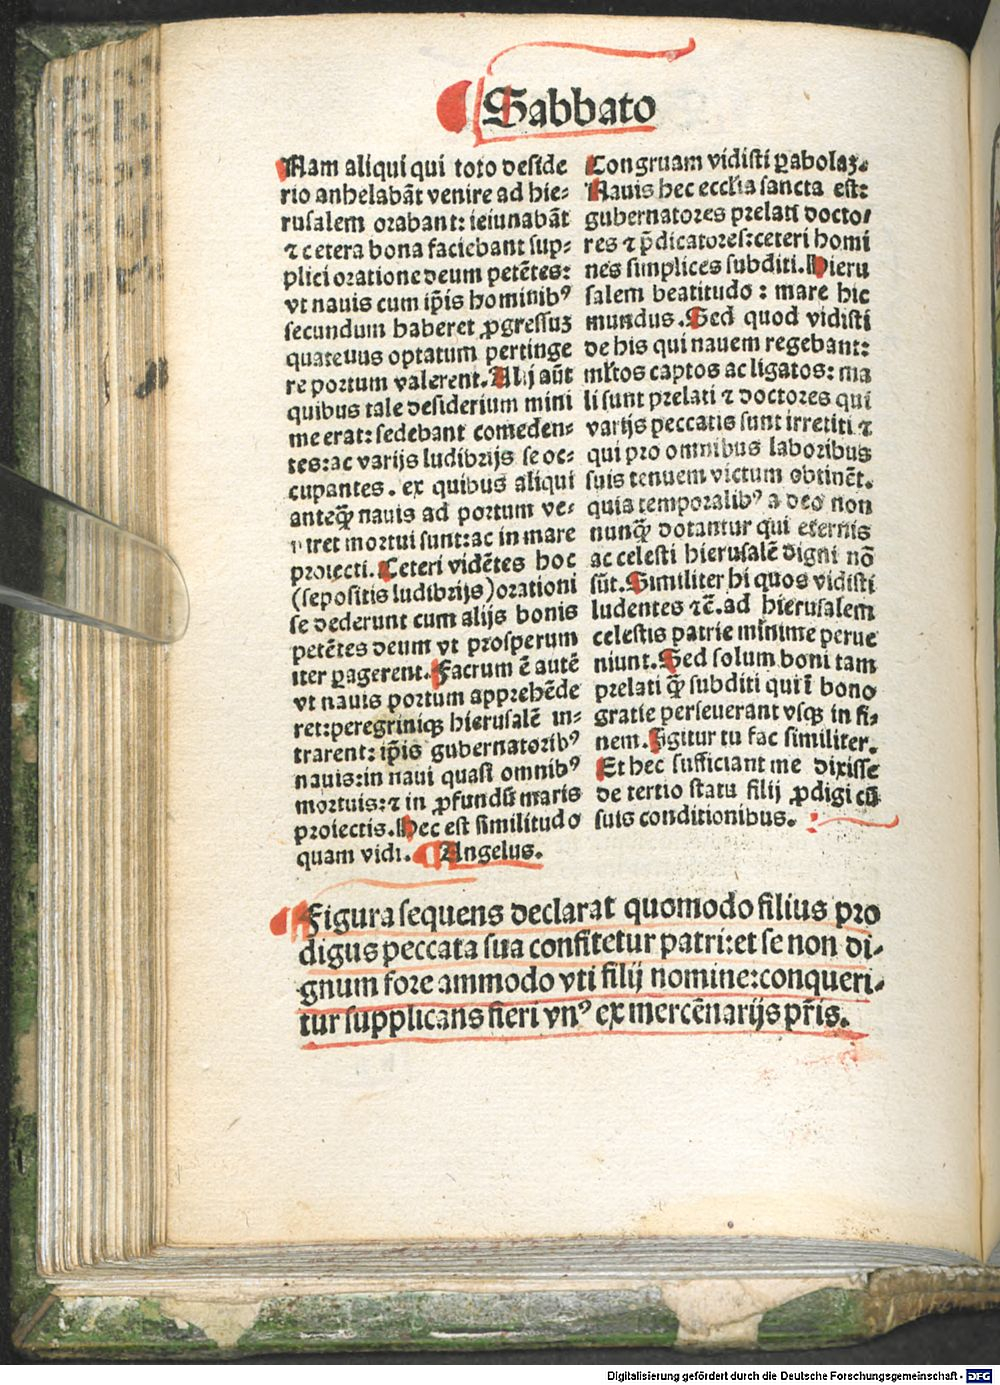 ¶ Sabbato
Nam aliqui qui toto deside
rio anhelabāt venire ad hie⸗
rusalem orabant: ieiunabāt
⁊ cetera bona faciebant sup⸗
plici oratione deum petētes:
vt nauis cum ip̄is hominibꝰ
secundum haberet ꝓgressuꝫ
quatevus optatum pertinge
re portum valerent. Alij aūt
quibus tale desiderium mini
me erat: sedebant comeden⸗
tes: ac varijs ludibrijs se oc⸗
cupantes. ex quibus aliqui
anteqꝫ̄ nauis ad portum ve⸗
niret mortui sunt: ac in mare
proiecti. Ceteri vidētes hoc
(sepositis ludibrijs) orationi
se dederunt cum alijs bonis
petētes deum vt prosperum
iter ꝑagerent. Facrum ē autē
vt nauis portum apprehēde
ret: peregriniqꝫ hierusalē in⸗
trarent: ip̄is gubernatoribꝰ
nauis: in naui quasi omnibꝰ
mortuis: ⁊ in ꝓfundū maris
proiectis. Hec est similitudo
quam vidi. ¶ Angelus.
Congruam vidisti ꝑabolaꝫ.
Nauis hec eccl̄ia sancta est:
gubernatores prelati docto/
res ⁊ p̄dicatores: ceteri homi
nes simplices subditi. Hieru
salem beatitudo: mare hic
mundus. Sed quod vidisti
de his qui nauem regebant:
ml̄tos captos ac ligatos: ma
li sunt prelati ⁊ doctores qui
varijs peccatis sunt irretiti ⁊
qui pro omnibus laboribus
suis tenuem victum obtinēt.
quia temporalibꝰ a deo non
nunqꝫ̄ dotantur qui eternis
ac celesti hierusalē digni nō
sūt. Similiter hi quos vidisti
ludentes ⁊c̄. ad hierusalem
celestis patrie minime perue
niunt. Sed solum boni tam
prelati qꝫ̄ subditi qui ī bono
gratie perseuerant vsqꝫ in fi⸗
nem. Igitur tu fac similiter.
Et hec sufficiant me dixisse
de tertio statu filij ꝓdigi cū
suis conditionibus.
¶ Figura sequens declarat quomodo filius pro
digus peccata sua confitetur patri: et se non di⸗
gnum fore ammodo vti filij nomine: conqueri⸗
tur supplicans fieri vnꝰ ex mercēnarijs pr̄is.
Digitalisierung gefördert durch die Deutsche Forschungsgemeinschaft - DFG